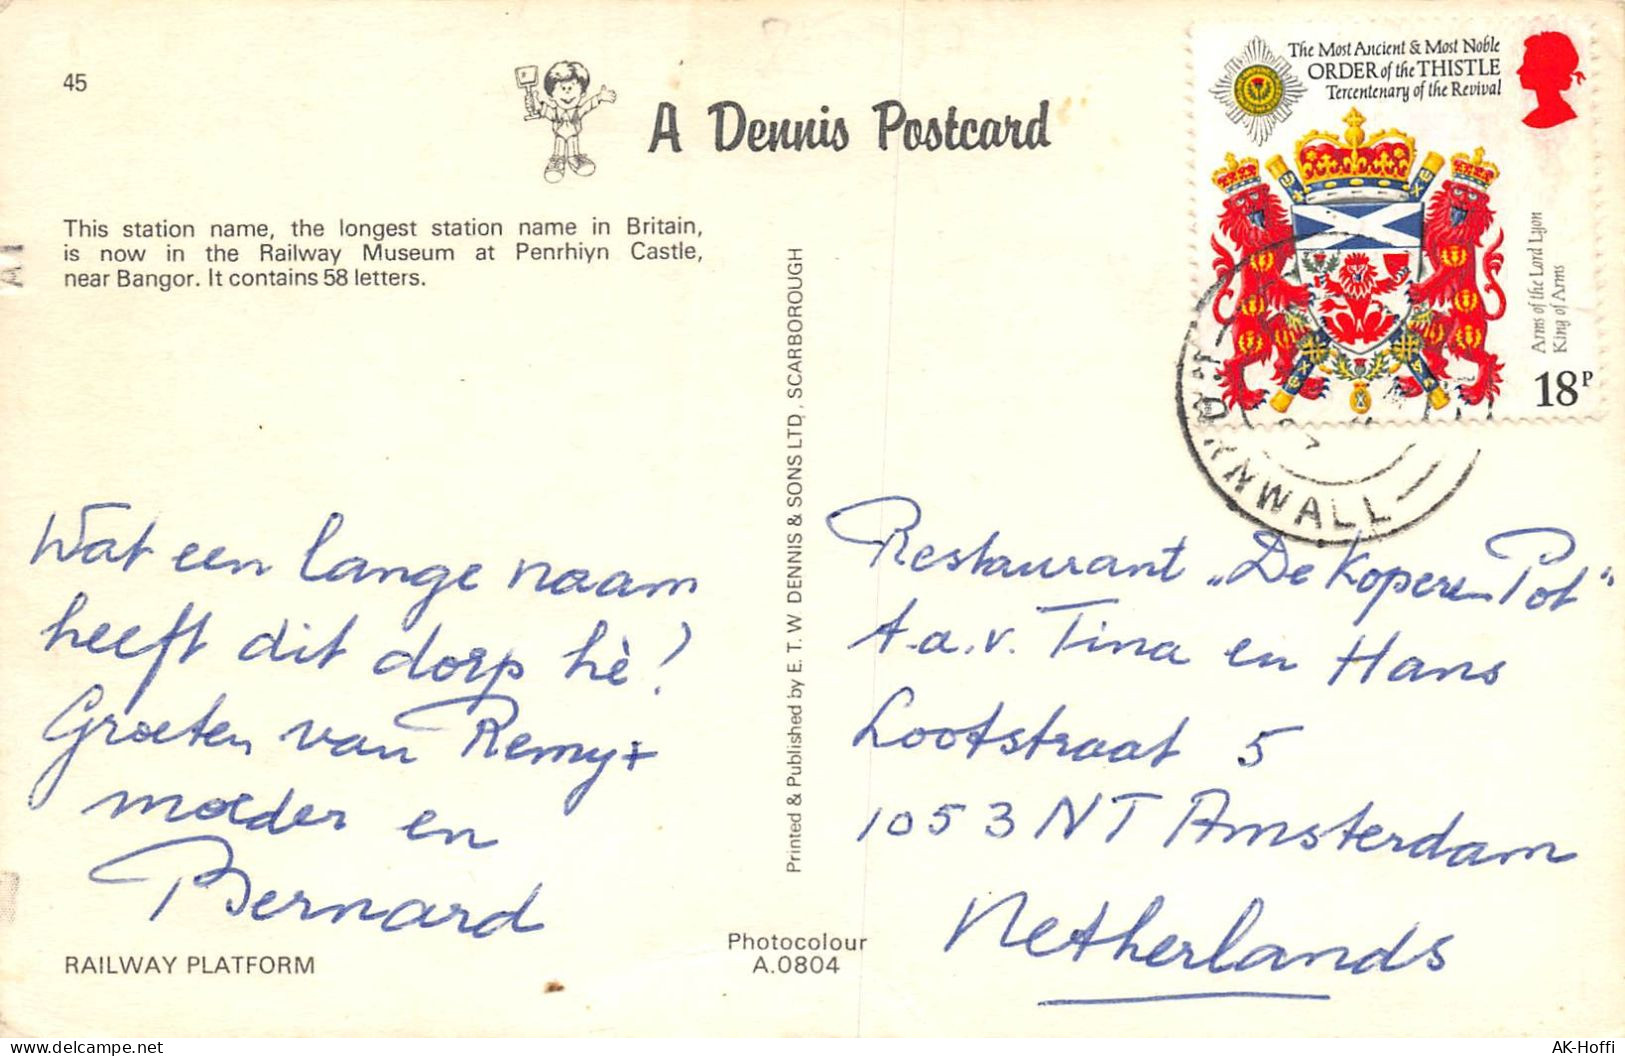 45
A Dennis Postcard
The Most Ancient & Most Noble
ORDER of the THISTLE
Tercentenary of the Revival
Arms of the Lord Lyon
King of Arms
18P
CORNWALL
This station name, the longest station name in Britain,
is now in the Railway Museum at Penrhiyn Castle,
near Bangor. It contains 58 letters.
Wat een lange naam
heeft dit dorp hè!
Groeten van Remy +
moeder en
Bernard
RAILWAY PLATFORM
Printed & Published by E. T. W DENNIS & SONS LTD, SCARBOROUGH
Photocolour
A.0804
Restaurant „De Koperen Pot"
t.a.v. Tina en Hans
Lootsstraat 5
1053 NT Amsterdam
Netherlands
www.delcampe.net
AK-Hoffi